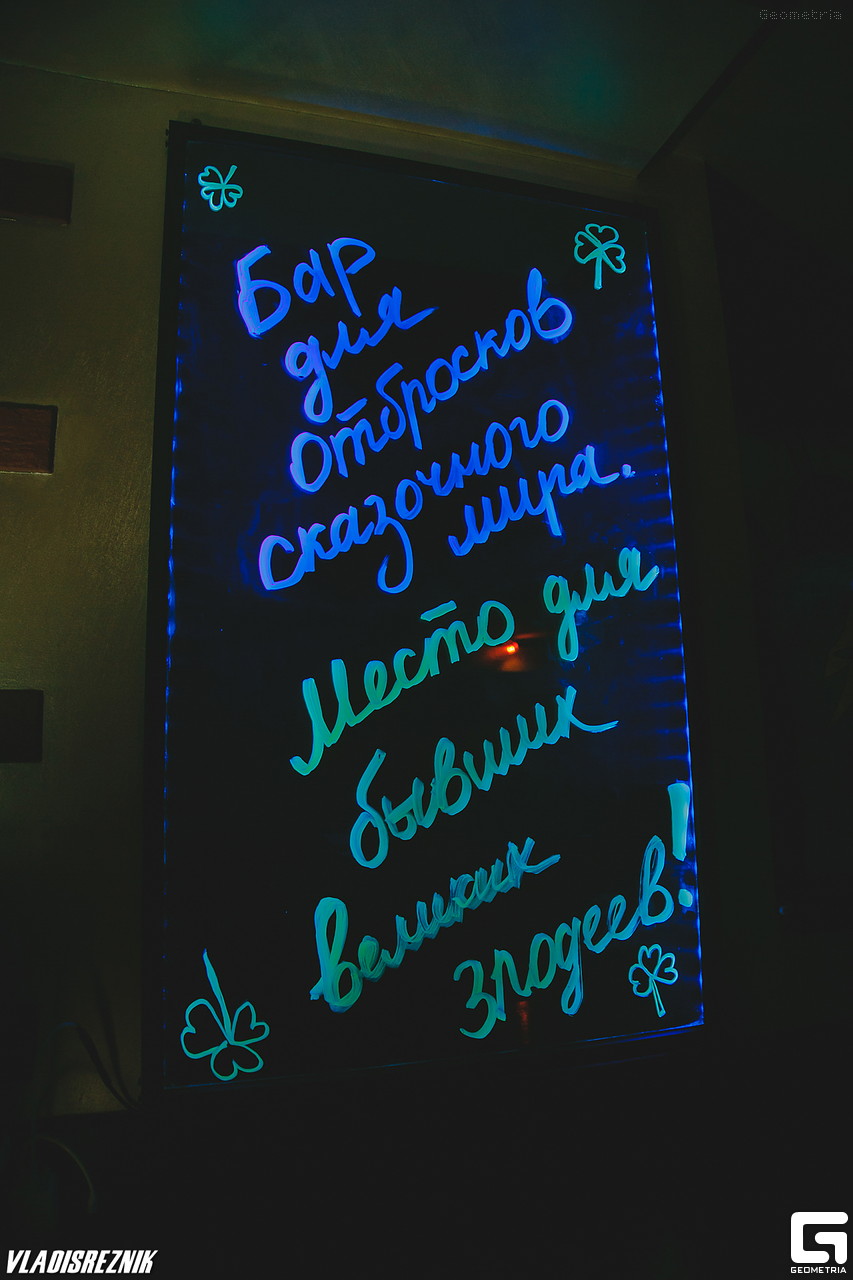 Geometria
Бар
для
отбросков
сказочного
мира.
Место для
бывших
великих
злодеев!
VLADISREZNIK
GEOMETRIA